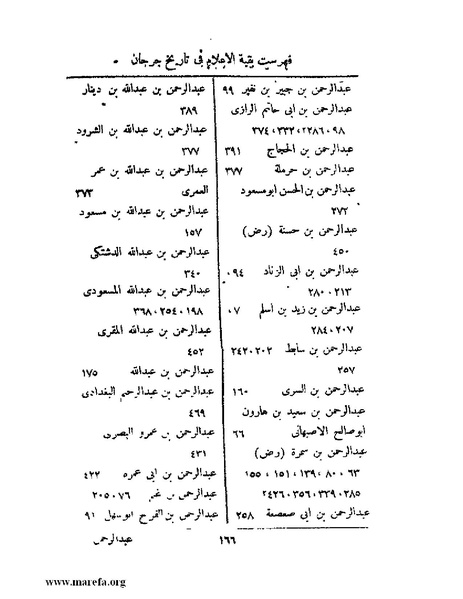 فهرست بقية الأعلام في تاريخ جرجان .
عبدالرحمن بن جبير بن نفير ٩٩
عبدالرحمن بن ابى حاتم الرازى
٩٨، ٢٢٨٦، ٣٣٢، ٣٧٤
عبدالرحمن بن الحجاج ٣٩١
عبدالرحمن بن حرملة ٣٧٧
عبدالرحمن بن الحسن ابومسعود
٢٧٢
عبدالرحمن بن حسنة (رض)
٤٥٠
عبدالرحمن بن ابى الزناد ٩٤،
٢١٣، ٢٨٠
عبدالرحمن بن زيد بن اسلم ٠٧
٢٠٧، ٢٨٤
عبدالرحمن بن سابط ٢٠٢، ٢٤٢
٢٥٧
عبدالرحمن بن السرى ١٦٠
عبدالرحمن بن سعيد بن هارون
ابوصالح الاصبهانى ٦٦
عبدالرحمن بن سمرة (رض)
٦٣، ٨٠، ١٣٩، ١٥١، ١٥٥
٢٨٥، ٣٢٩، ٣٥٦، ٤٢٦
عبدالرحمن بن ابى صعصعة ٢٥٨
عبدالرحمن بن عبدالله بن دينار
٣٨٩
عبدالرحمن بن عبدالله بن الشرود
٣٧٧
عبدالرحمن بن عبدالله بن عمر
العمرى ٣٧٣
عبدالرحمن بن عبدالله بن مسعود
١٥٧
عبدالرحمن بن عبدالله الدشتكى
٣٤٠
عبدالرحمن بن عبدالله المسعودى
١٩٨، ٢٥٤، ٣٦٨
عبدالرحمن بن عبدالله المقرى
٤٥٢
عبدالرحمن بن عبدالله ١٧٥
عبدالرحمن بن عبدالرحيم البغدادى
٤٦٩
عبدالرحمن بن عمرو البصرى
٤٣١
عبدالرحمن بن ابى عمره ٤٢٢
عبدالرحمن بن غنم ٧٦، ٢٠٥
عبدالرحمن بن الفرج ابوسهل ٩١
١٦٦
عبدالرحمن
www.marefa.org